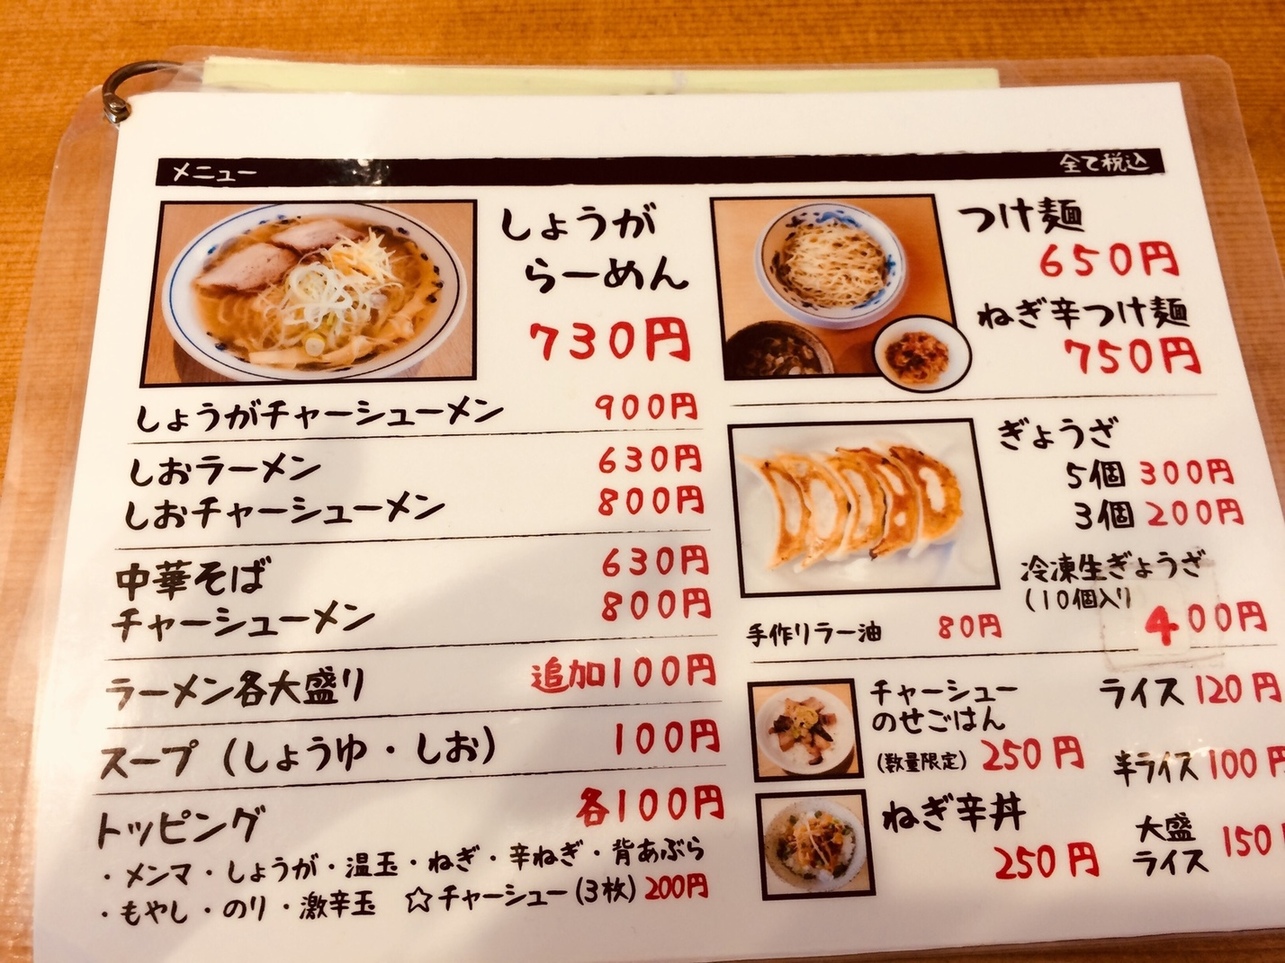 メニュー
全て税込
しょうが
らーめん
730円
しょうがチャーシューメン 900円
しおラーメン 630円
しおチャーシューメン 800円
中華そば 630円
チャーシューメン 800円
ラーメン各大盛り 追加100円
スープ（しょうゆ・しお） 100円
トッピング 各100円
・メンマ・しょうが・温玉・ねぎ・辛ねぎ・背あぶら
・もやし・のり・激辛玉 ☆チャーシュー(3枚) 200円
つけ麺
650円
ねぎ辛つけ麺
750円
ぎょうざ
5個 300円
3個 200円
冷凍生ぎょうざ
(10個入り
400円
手作りラー油 80円
チャーシュー
のせごはん
(数量限定) 250円
ねぎ辛丼
250円
ライス 120円
半ライス 100円
大盛
ライス 150